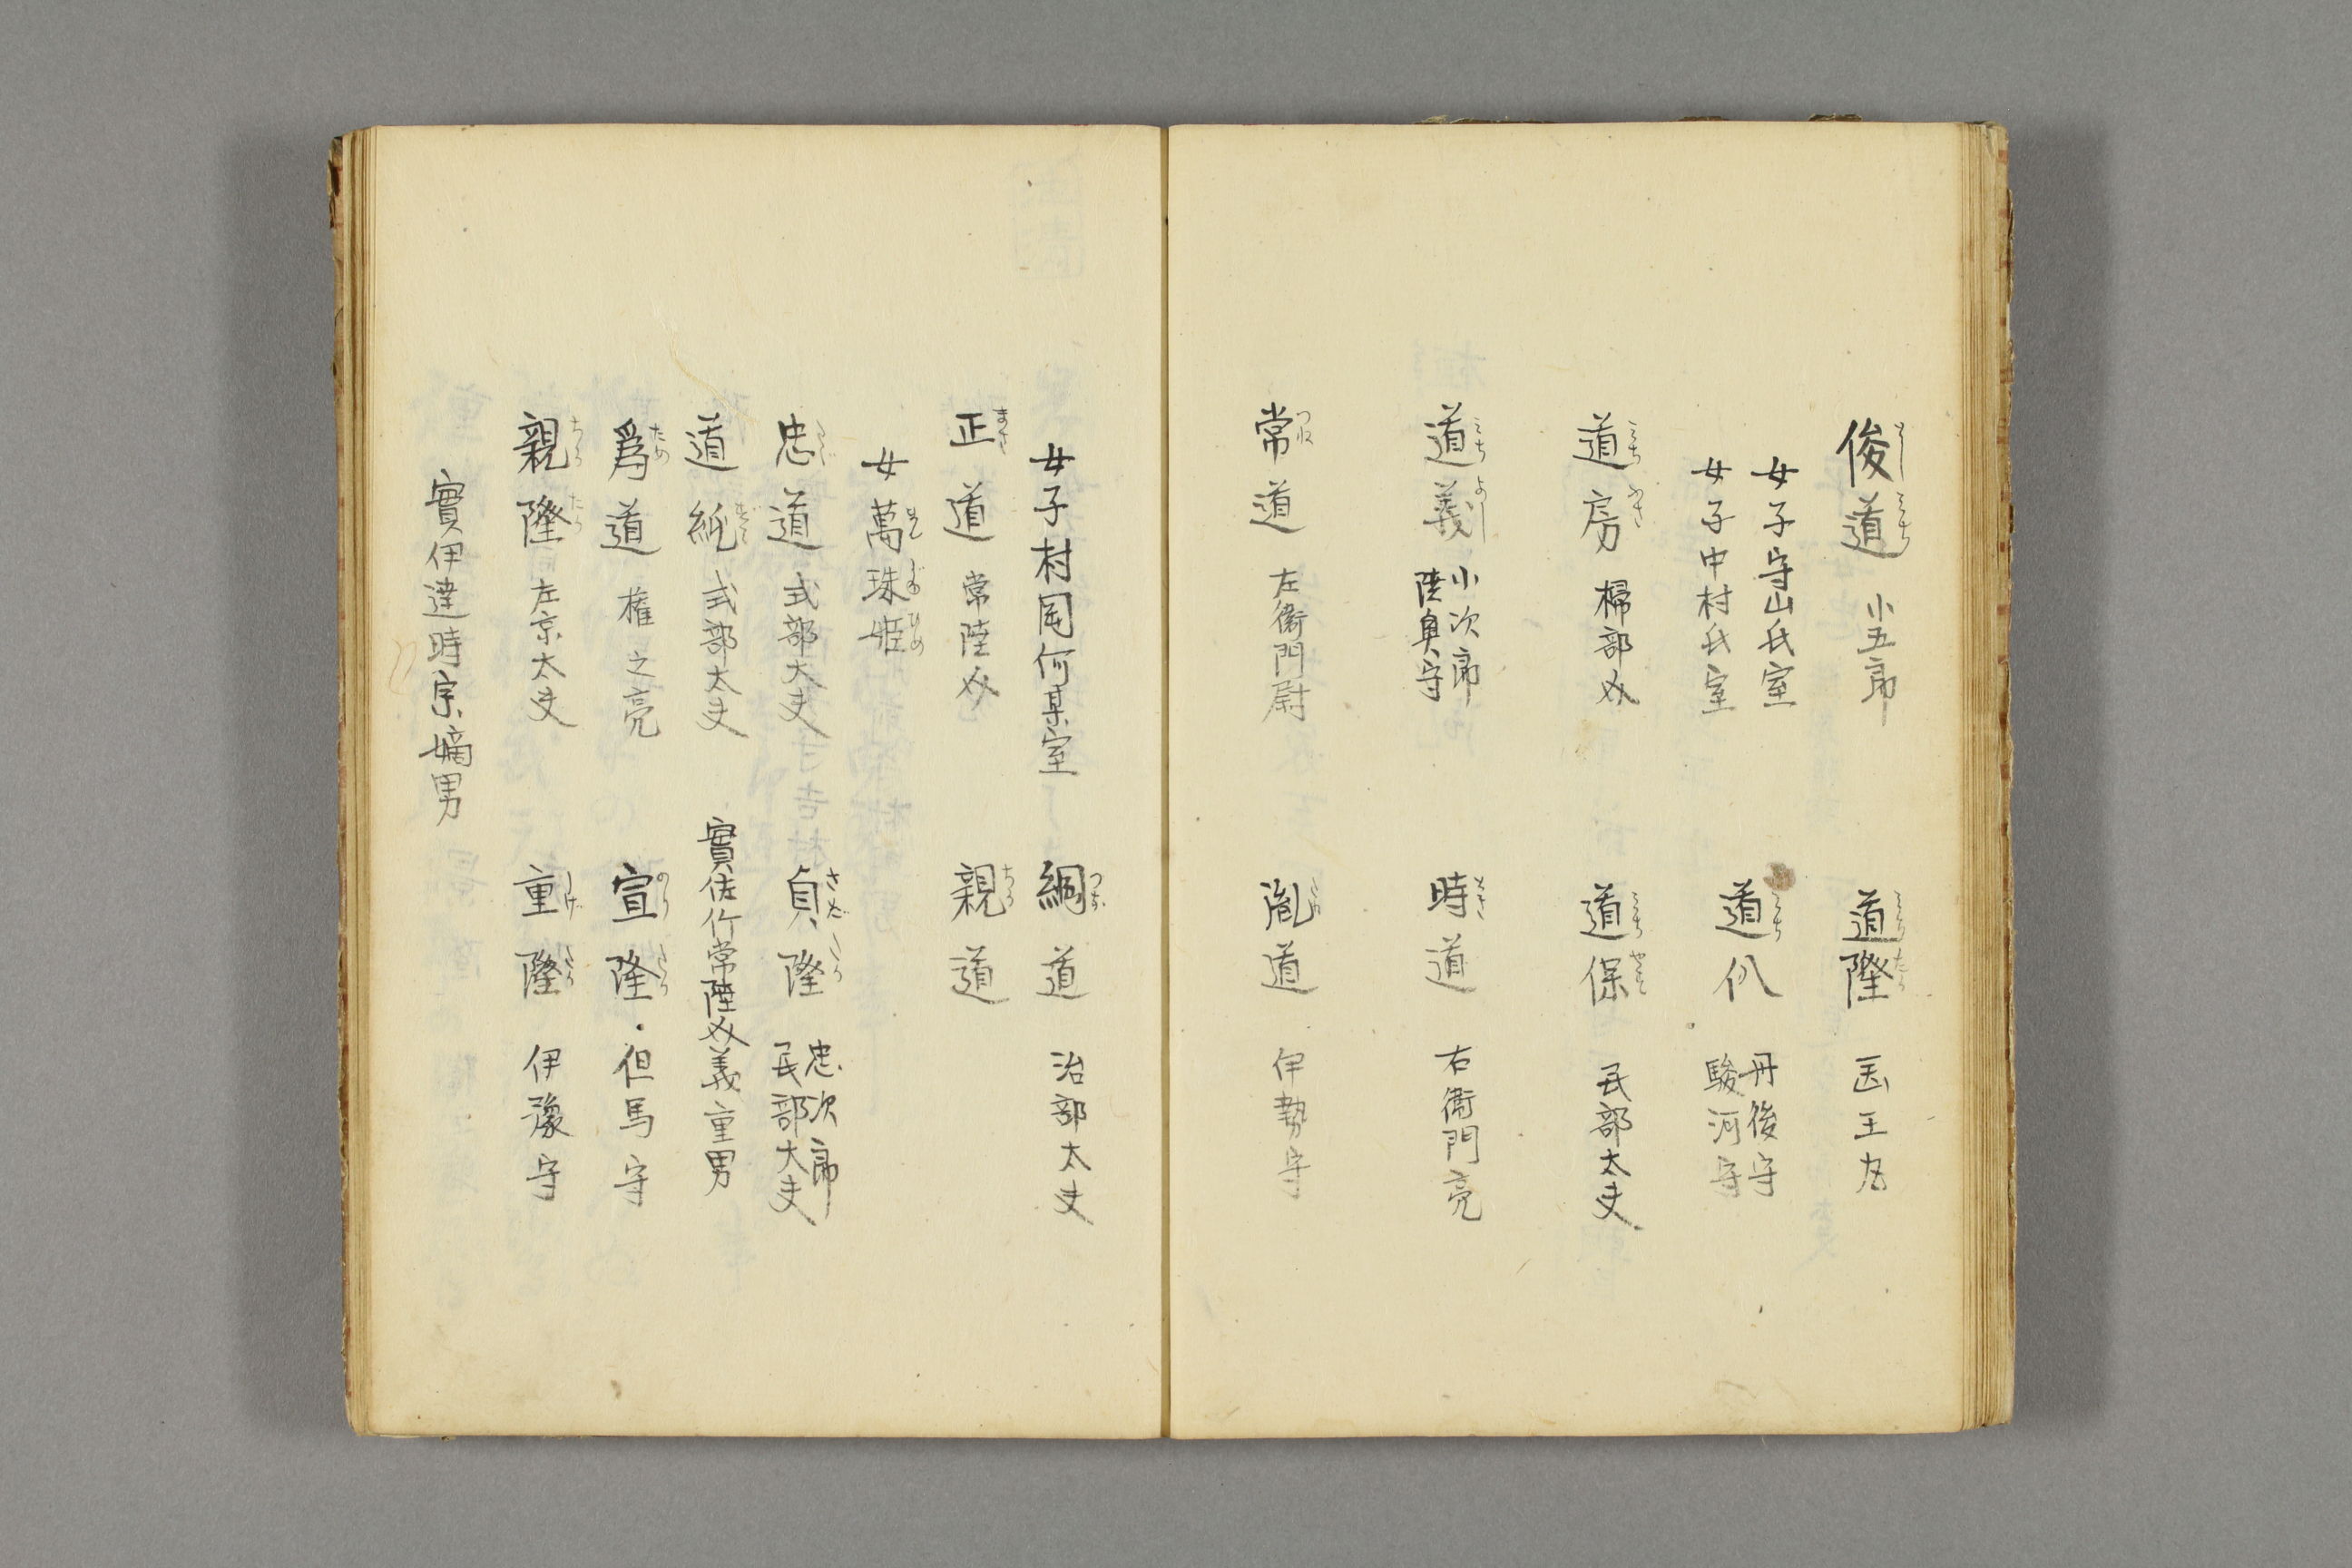 俊道 小五郎
女子守山氏室
女子中村氏室
道房 掃部助
道義 小次郎
陸奥守
常道 左衛門尉
道隆 医王丸
道仈 丹後守
駿河守
道保 民部太夫
時道 右衛門亮
胤道 伊勢守
女子村岡何某室
正道 常陸介
女萬珠姫
忠道 式部大夫
道純 式部太夫
爲道 権之亮
親隆 左京太夫
實伊達時宗嫡男
綱道 治部太夫
親道
貞隆 忠次郎
民部大夫
實佐竹常陸介義重男
宣隆 但馬守
重隆 伊豫守